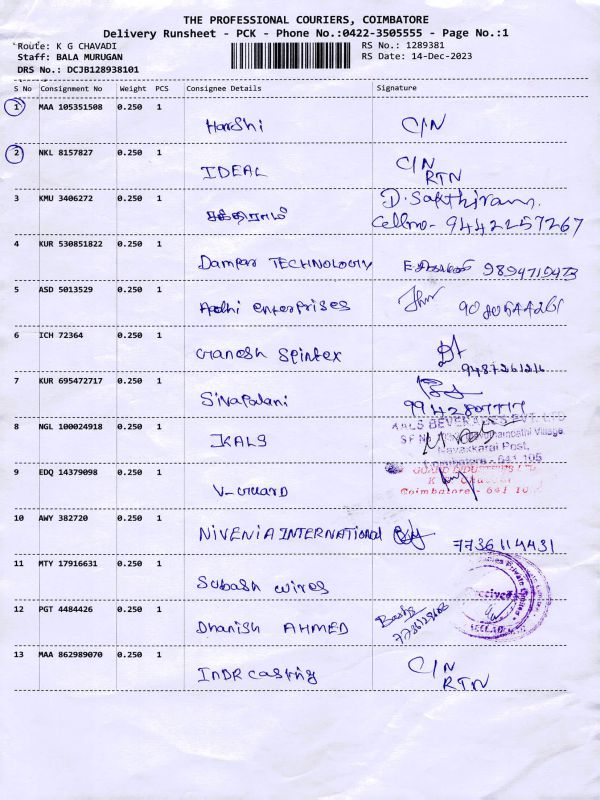 THE PROFESSIONAL COURIERS, COIMBATORE
Delivery Runsheet - PCK - Phone No.:0422-3505555 - Page No.:1
Route: K G CHAVADI
RS No.: 1289381
Staff: BALA MURUGAN
RS Date: 14-Dec-2023
DRS No.: DCJB128938101
S No Consignment No Weight PCS Consignee Details Signature
1 MAA 105351508 0.250 1
Harshi C/N
2 NKL 8157827 0.250 1
IDEAL C/N
RTN
3 KMU 3406272 0.250 1
D. Sakthiram.
Cell no- 9442257267
4 KUR 530851822 0.250 1
Dampar TECHNOLOGY 9894710473
5 ASD 5013529 0.250 1
Aadhi enterprises
6 ICH 72364 0.250 1
Ganesh Spintex
9487261216
7 KUR 695472717 0.250 1
Sivapalani
8 NGL 100024918 0.250 1
KALS
KALS BEVERAGES PVT. LTD
Village
Navakkarai Post,
Coimbatore - 641 105
9 EDQ 14379098 0.250 1
V-GUARD
V GUARD INDUSTRIES LTD
Coimbatore - 641 105
10 AWY 382720 0.250 1
NIVENIA INTERNATIONAL 7736114431
11 MTY 17916631 0.250 1
Subash wires
Received
12 PGT 4484426 0.250 1
Dhanish AHMED
13 MAA 862989070 0.250 1
INDR casting C/N
RTN